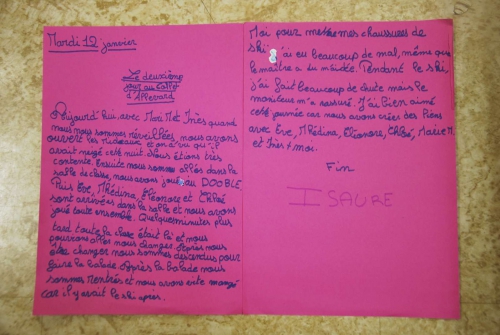 Mardi 12 janvier
Le deuxième
jour au Collet
d'Allevard
Aujourd'hui, avec Marie M et Inès quand
nous nous sommes réveillées, nous avons
ouvert les rideaux et on a vu qu'il
avait neigé cette nuit. Nous étions très
contente. Ensuite nous sommes allées dans la
salle de classe, nous avons joué au DOOBLE.
Puis Eve, Mhédina, Eléonore et Chloé
sont arrivées dans la salle et nous avons
joué toute ensemble. Quelques minutes plus
tard toute la classe était là et nous
pouvions aller nous changer. Après nous
être changer nous sommes descendus pour
faire la balade. Après la balade nous
sommes rentrés et nous avons vite mangé
car il y avait le ski après.
Moi pour mettre mes chaussures de
ski j'ai eu beaucoup de mal, même que
le maître a du m'aidée. Pendant le ski,
j'ai fait beaucoup de chute mais le
moniteur m'a rassuré. J'ai bien aimé
cette journée car nous avons créer des liens
avec Eve, Mhédina, Eléonore, Chloé, Marie M.
et Inès + moi.
Fin
ISAURE